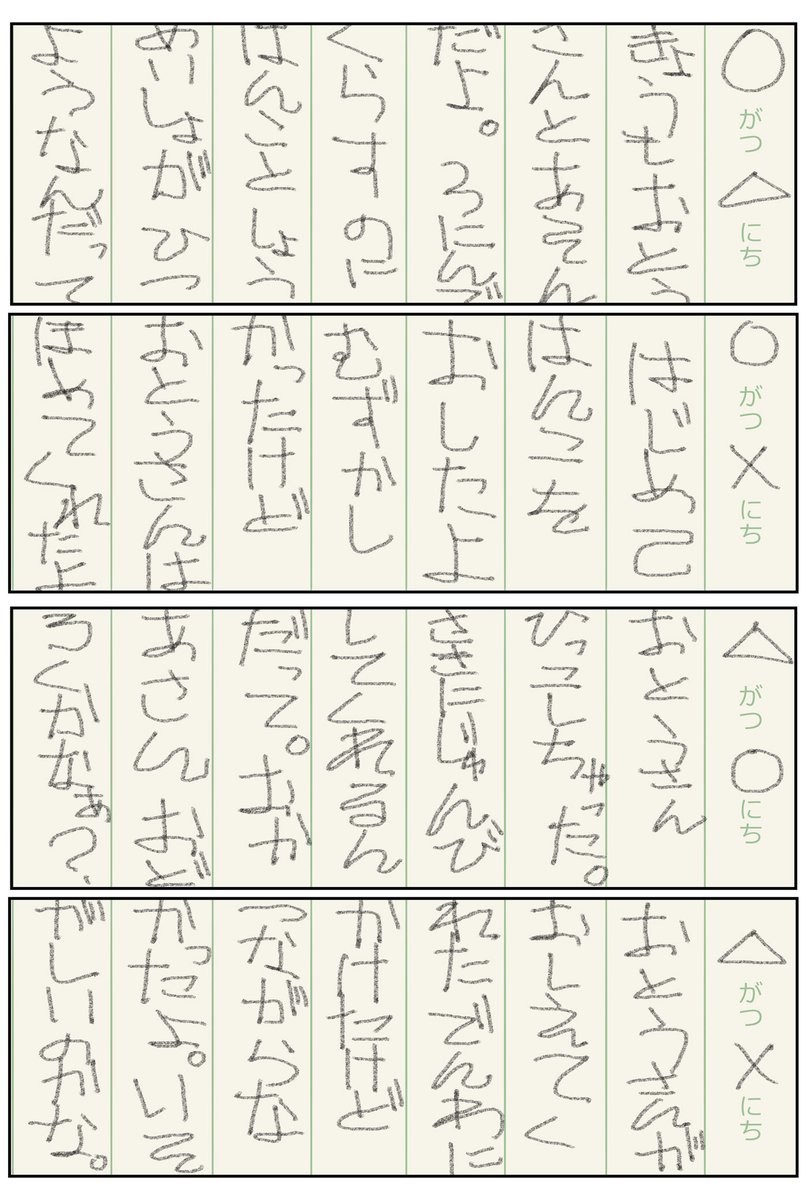 ○がつ△にち
きょうもおとう
さんとあそん
だよ。3にんで
くらすのに
はんことしょう
めいしょがひつ
ようなんだって
○がつ×にち
はじめて
はんこを
おしたよ
むずかし
かったけど
おとうさんは
ほめてくれたよ
△がつ○にち
おとうさん
ひっこしちゃった。
さきにじゅんび
してくれるん
だって。おか
あさんおど
ろくかなぁ?
△がつ×にち
おとうさんが
おしえてく
れたでんわに
かけたけど
つながらな
かったよ。いそ
がしいのかな。